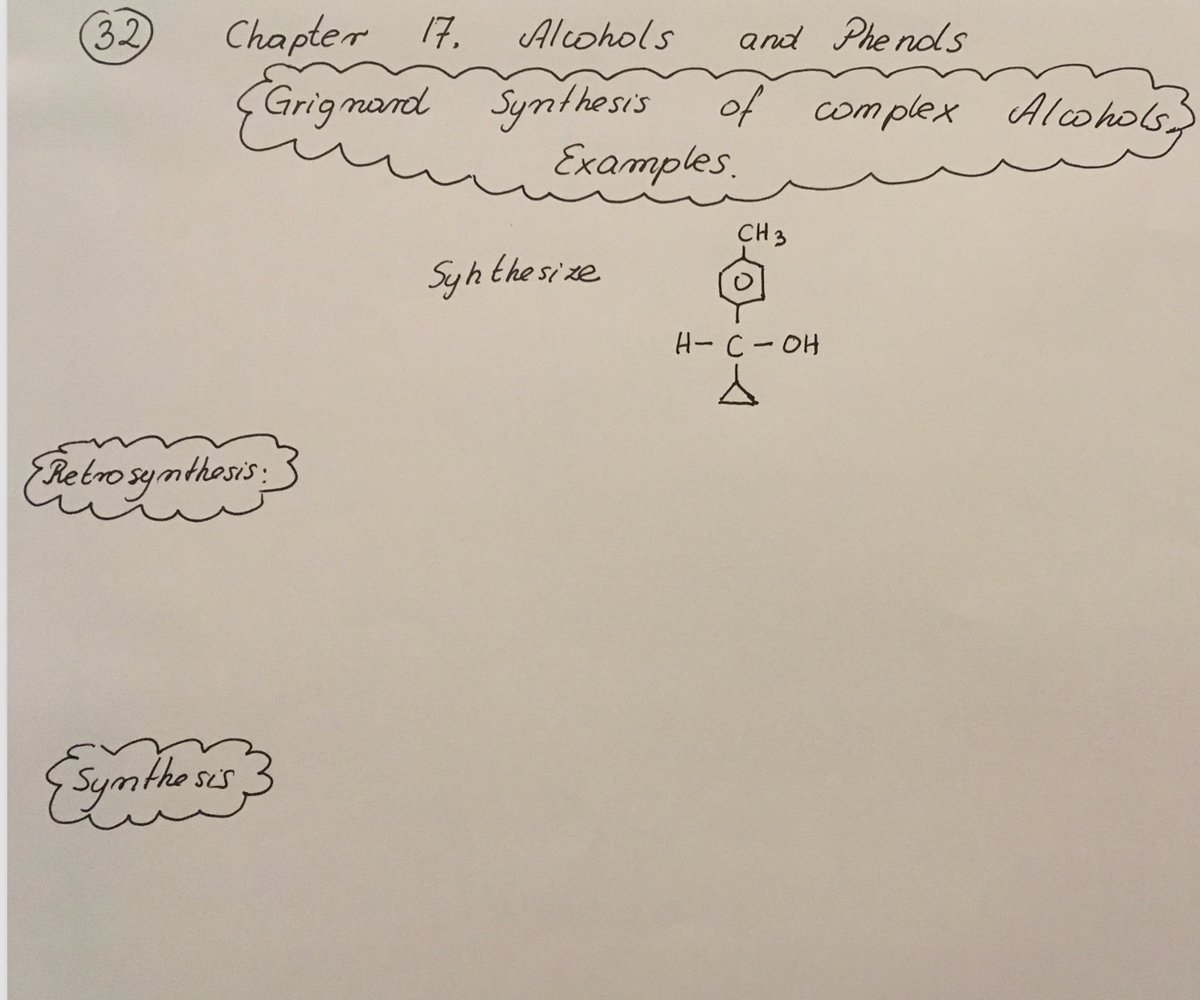 32 Chapter 17. Alcohols and Phenols
Grignard Synthesis of complex Alcohols.
Examples.
CH3
Syhthesize
H- C - OH
Retrosynthesis:
Synthesis